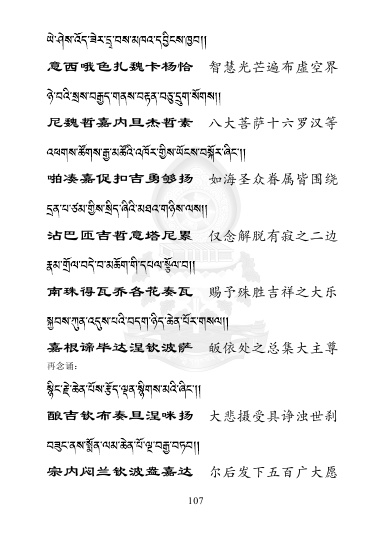 ཡེ་ཤེས་འོད་ཟེར་དྲྭ་བས་མཁའ་དབྱིངས་ཁྱབ།།
意西哦色扎魏卡杨恰 智慧光芒遍布虚空界
ཉེ་བའི་སྲས་བརྒྱད་གནས་བརྟན་བཅུ་དྲུག་སོགས།།
尼魏哲嘉内旦杰哲素 八大菩萨十六罗汉等
འཕགས་ཚོགས་རྒྱ་མཚོའི་འཁོར་གྱིས་ཡོངས་བསྐོར་ཞིང་།།
啪凑嘉促扣吉勇够扬 如海圣众眷属皆围绕
དྲན་པ་ཙམ་གྱིས་སྲིད་ཞིའི་མཐའ་གཉིས་ལས།།
沾巴匝吉哲意塔尼累 仅念解脱有寂之二边
རྣམ་གྲོལ་བདེ་བ་མཆོག་གི་དཔལ་སྩོལ་བ།།
南珠得瓦乔各花奏瓦 赐予殊胜吉祥之大乐
སྐྱབས་ཀུན་འདུས་པའི་བདག་ཉིད་ཆེན་པོར་གསལ།།
嘉根谛毕达涅钦波萨 皈依处之总集大主尊
再念诵：
སྙིང་རྗེ་ཆེན་པོས་རྩོད་ལྡན་སྙིགས་མའི་ཞིང་།།
酿吉钦布奏旦涅咪扬 大悲摄受具诤浊世刹
བཟུང་ནས་སྨོན་ལམ་ཆེན་པོ་ལྔ་བརྒྱ་བཏབ།།
宗内闷兰钦波盎嘉达 尔后发下五百广大愿
107